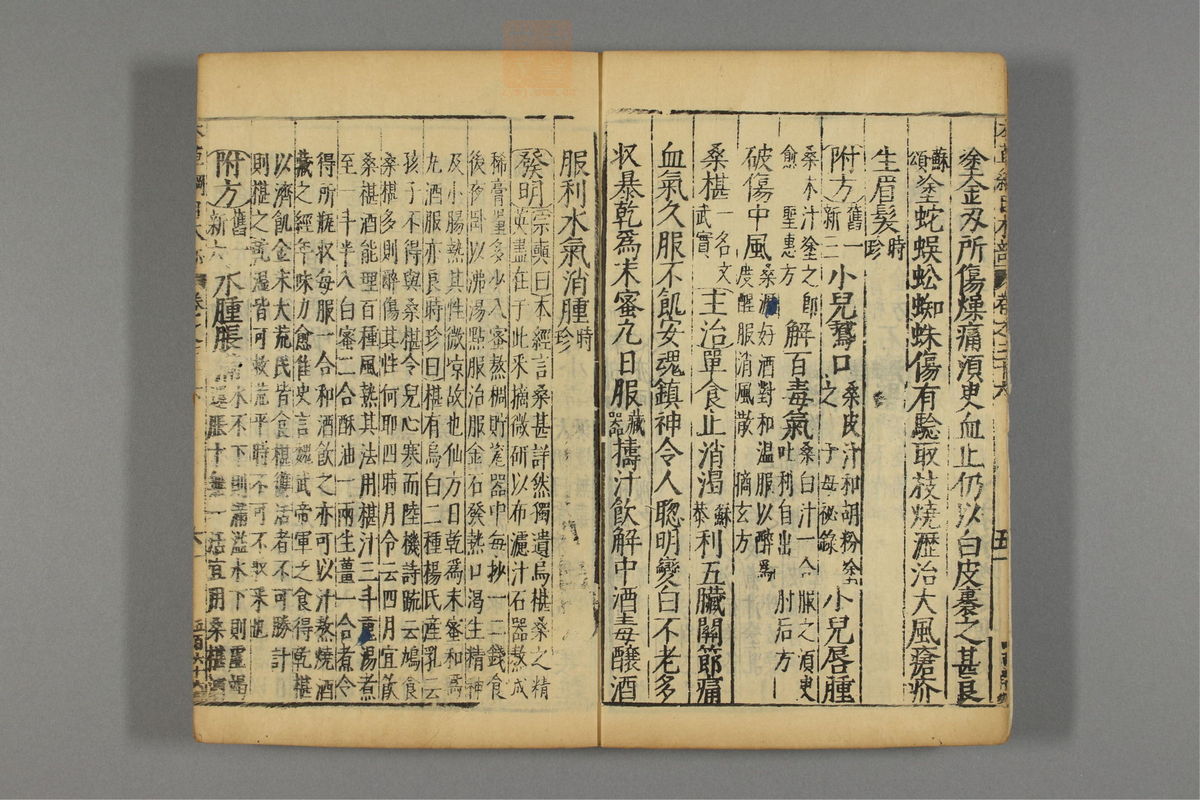 塗金刃所傷燥痛須臾血止仍以白皮裹之甚良
蘇頌塗蛇蜈蚣蜘蛛傷有驗取枝燒瀝治大風瘡疥
生眉髮時珍
附方舊一新三小兒鵞口桑皮汁和胡粉塗之子母祕錄小兒唇腫
桑木汁塗之即愈聖惠方解百毒氣桑白汁一合服之須臾吐利自出肘后方
破傷中風桑瀝好酒對和温服以醉爲度醒服消風散摘玄方
桑椹一名文武實主治單食止消渴蘇恭利五臟關節痛
血氣久服不飢安魂鎮神令人聦明變白不老多
収暴乾爲末蜜丸日服藏器擣汁飲解中酒毒釀酒
服利水氣消腫時珍
發明宗奭曰本經言桑甚詳然獨遺烏椹桑之精
英盡在于此采摘微研以布濾汁石器熬成
稀膏量多少入蜜熬稠貯瓷器中每抄一二錢食
後夜卧以沸湯點服治服金石發熱口渴生精神
及小腸熱其性微凉故也仙方日乾爲末蜜和爲
丸酒服亦良時珍曰椹有烏白二種楊氏産乳云
孩子不得與桑椹令兒心寒而陸機詩䟽云鳩食
桑椹多則醉傷其性何耶四時月令云四月宜飲
桑椹酒能理百種風熱其法用椹汁三斗重湯煮
至一斗半入白蜜二合酥油一兩生薑一合煮令
得所瓶収每服一合和酒飲之亦可以汁熬燒酒
藏之經年味力愈佳史言魏武帝軍乏食得乾椹
以濟飢金末大荒民皆食椹獲活者不可勝計
則椹之乾濕皆可救荒平時不可不収采也
附方舊一新六水腫脹滿水不下則滿溢水下則虛竭還脹十無一活宜用桑椹酒